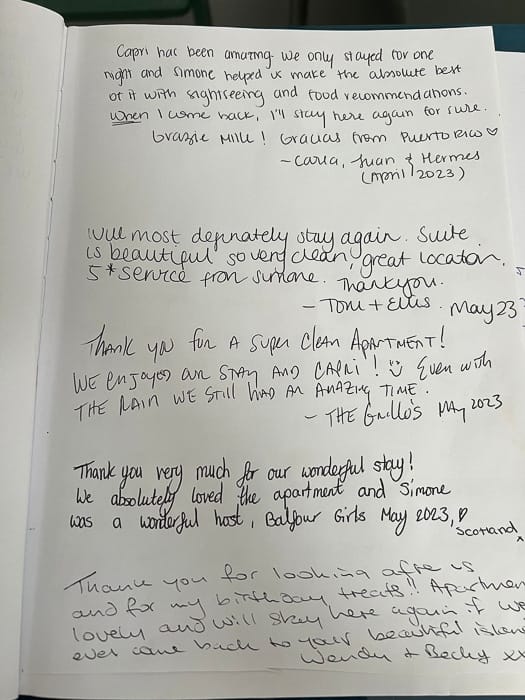 Capri has been amazing. We only stayed for one
night and Simone helped us make the absolute best
of it with sightseeing and food recommendations.
When I come back, I'll stay here again for sure.
Grazie Mille! Gracias from Puerto Rico ♡
- Carla, Juan & Hermes
(April 2023)
Will most definately stay again. Suite
is beautiful so very clean, great location.
5* service from Simone. Thankyou.
- Toni + Ellis. May 23
Thank you for a super clean apartment!
We enjoyed our stay and Capri! Even with
the rain we still had an amazing time.
- The Grillo's May 2023
Thank you very much for our wonderful stay!
We absolutely loved the apartment and Simone
was a wonderful host, Balfour Girls May 2023, ♡
Scotland x
Thank you for looking after us
and for my birthday treats!! Apartmen
lovely and will stay here again if we
ever come back to your beautiful islan
Wendy + Becky xx